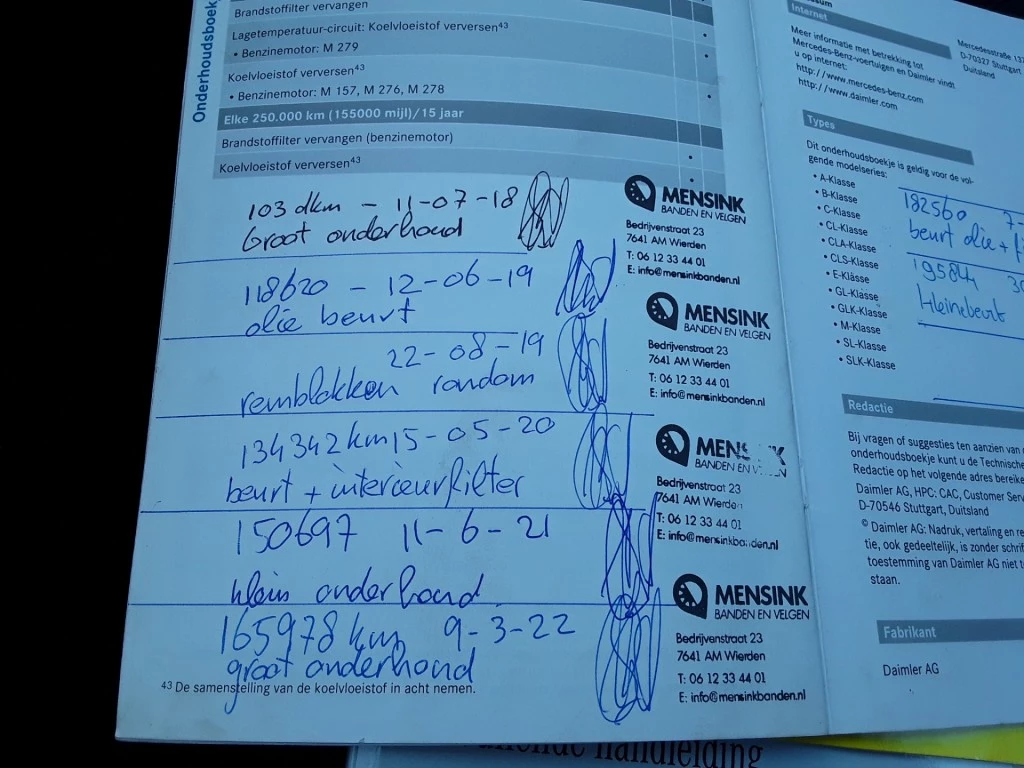 Onderhoudsboek
Brandstoffilter vervangen
Lagetemperatuur-circuit: Koelvloeistof verversen⁴³
• Benzinemotor: M 279
Koelvloeistof verversen⁴³
• Benzinemotor: M 157, M 276, M 278
Elke 250.000 km (155000 mijl)/15 jaar
Brandstoffilter vervangen (benzinemotor)
Koelvloeistof verversen⁴³
103 dkm - 11-07-18
Groot onderhoud
118620 - 12-06-19
olie beurt
22-08-19
remblokken rondom
134342 km 15-05-20
beurt + interieurfilter
150697 11-6-21
klein onderhoud
165978 km 9-3-22
groot onderhoud
43 De samenstelling van de koelvloeistof in acht nemen.
MENSINK
BANDEN EN VELGEN
Bedrijvenstraat 23
7641 AM Wierden
T: 06 12 33 44 01
E: info@mensinkbanden.nl
MENSINK
BANDEN EN VELGEN
Bedrijvenstraat 23
7641 AM Wierden
T: 06 12 33 44 01
E: info@mensinkbanden.nl
MENS K
BANDEN EN V EN
Bedrijvenstraat 23
7641 AM Wierden
T: 06 12 33 44 01
E: info@mensinkbanden.nl
MENSINK
BANDEN EN VELGEN
Bedrijvenstraat 23
7641 AM Wierden
T: 06 12 33 44 01
E: info@mensinkbanden.nl
Internet
Meer informatie met betrekking tot
Mercedes-Benz-voertuigen en Daimler vindt
u op internet:
http://www.mercedes-benz.com
http://www.daimler.com
Mercedesstraße 13
D-70327 Stuttgart
Duitsland
Types
Dit onderhoudsboekje is geldig voor de vol-
gende modelseries:
• A-Klasse
• B-Klasse
• C-Klasse
• CL-Klasse
• CLA-Klasse
• CLS-Klasse
• E-Klasse
• GL-Klasse
• GLK-Klasse
• M-Klasse
• SL-Klasse
• SLK-Klasse
182560 7-
beurt olie + f
195844 30
Kleine beurt
Redactie
Bij vragen of suggesties ten aanzien van
onderhoudsboekje kunt u de Technische
Redactie op het volgende adres bereike
Daimler AG, HPC: CAC, Customer Serv
D-70546 Stuttgart, Duitsland
© Daimler AG: Nadruk, vertaling en re
tie, ook gedeeltelijk, is zonder schrif
toestemming van Daimler AG niet t
staan.
Fabrikant
Daimler AG
handleiding